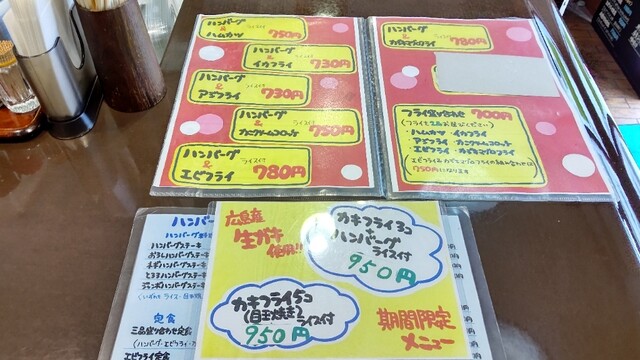 ハンバーグ
&
ハムカツ
ライス付
750円
ハンバーグ
&
イカフライ
ライス付
730円
ハンバーグ
&
アジフライ
730円
ハンバーグ
&
カニクリームコロッケ
750円
ハンバーグ
&
エビフライ
ライス付
780円
ハンバーグ
&
ライス付
780円
フライ盛り合わせ 700円
・ハムカツ イカフライ
・アジフライ カニクリームコロッケ
750円になります
広島産
生ガキ
使用!!
カキフライ3コ
+
ハンバーグ
ライス付
950円
カキフライ5コ
(目玉焼き)
ライス付
950円
期間限定
メニュー
ハンバー
ハンバーグステーキ
おろしハンバーグステーキ
ネギハンバーグステーキ
とろろハンバーグステーキ
ジャンボハンバーグステーキ
定食
三品盛り合わせ定食
エビフライ定食